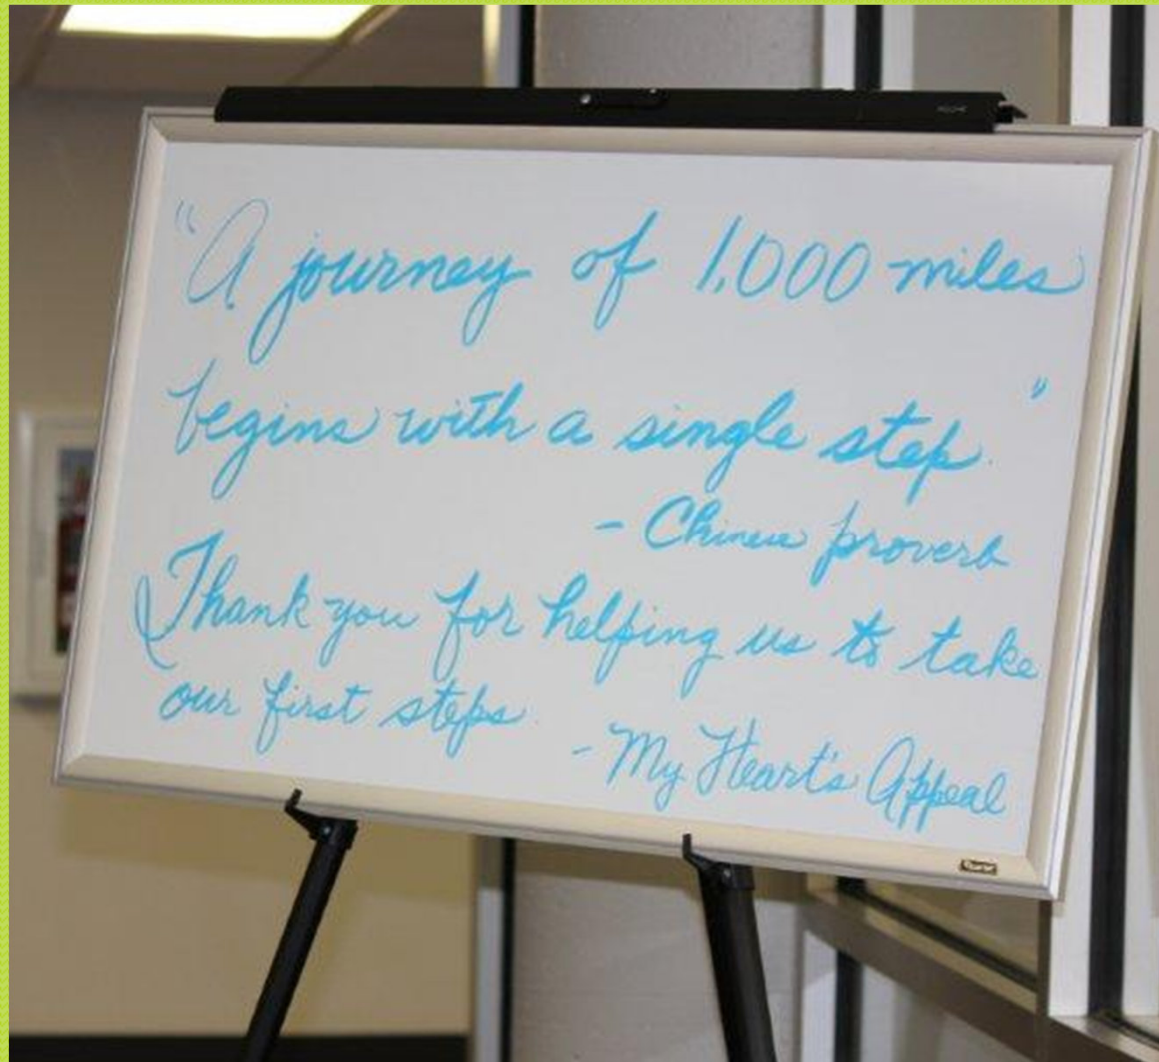 "A journey of 1,000 miles
begins with a single step."
- Chinese proverb
Thank you for helping us to take
our first steps.
- My Heart's Appeal